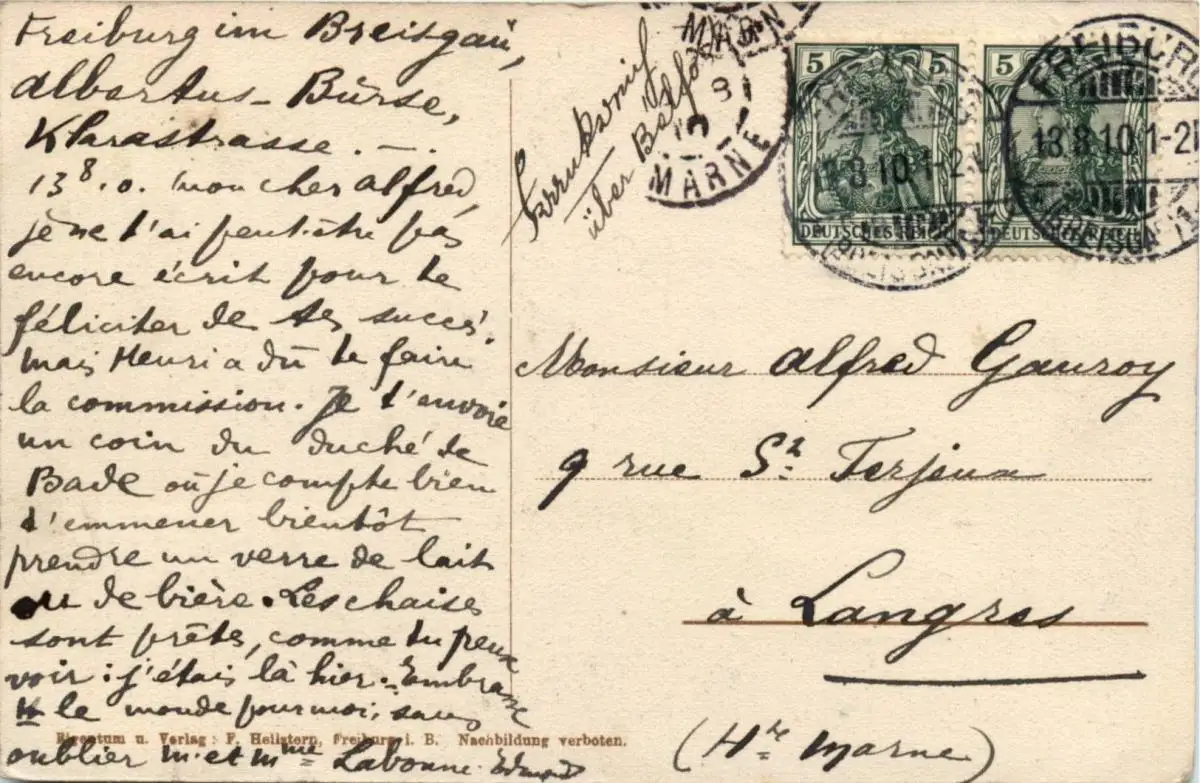 Freiburg im Breisgau,
Albertus-Bürse,
Klarastrasse. —.
13 8. 0. mon cher Alfred,
je ne t'ai peut-être pas
encore écrit pour te
féliciter de tes succès.
mais Henri a dû te faire
la commission. Je t'envoie
un coin du duché de
Bade où je compte bien
t'emmener bientôt
prendre un verre de lait
ou de bière. Les chaises
sont prêtes, comme tu peux
voir : j'étais là hier. - Embrasse
tt le monde pour moi, sans
oublier M. et Mme Labonne. Edmond
Eigentum u. Verlag: F. Hellstern, Freiburg i. B. Nachbildung verboten.
Frankreich
über Belfort
MARNE
MARNE
5 5
DEUTSCHES REICH
13.8.10.1-2
5
DEUTSCHES REICH
FREIBURG
13.8.10.1-2
(BREISGAU)
Monsieur Alfred Gauroy
9 rue St Ferjeux
à Langres
(Hte Marne)